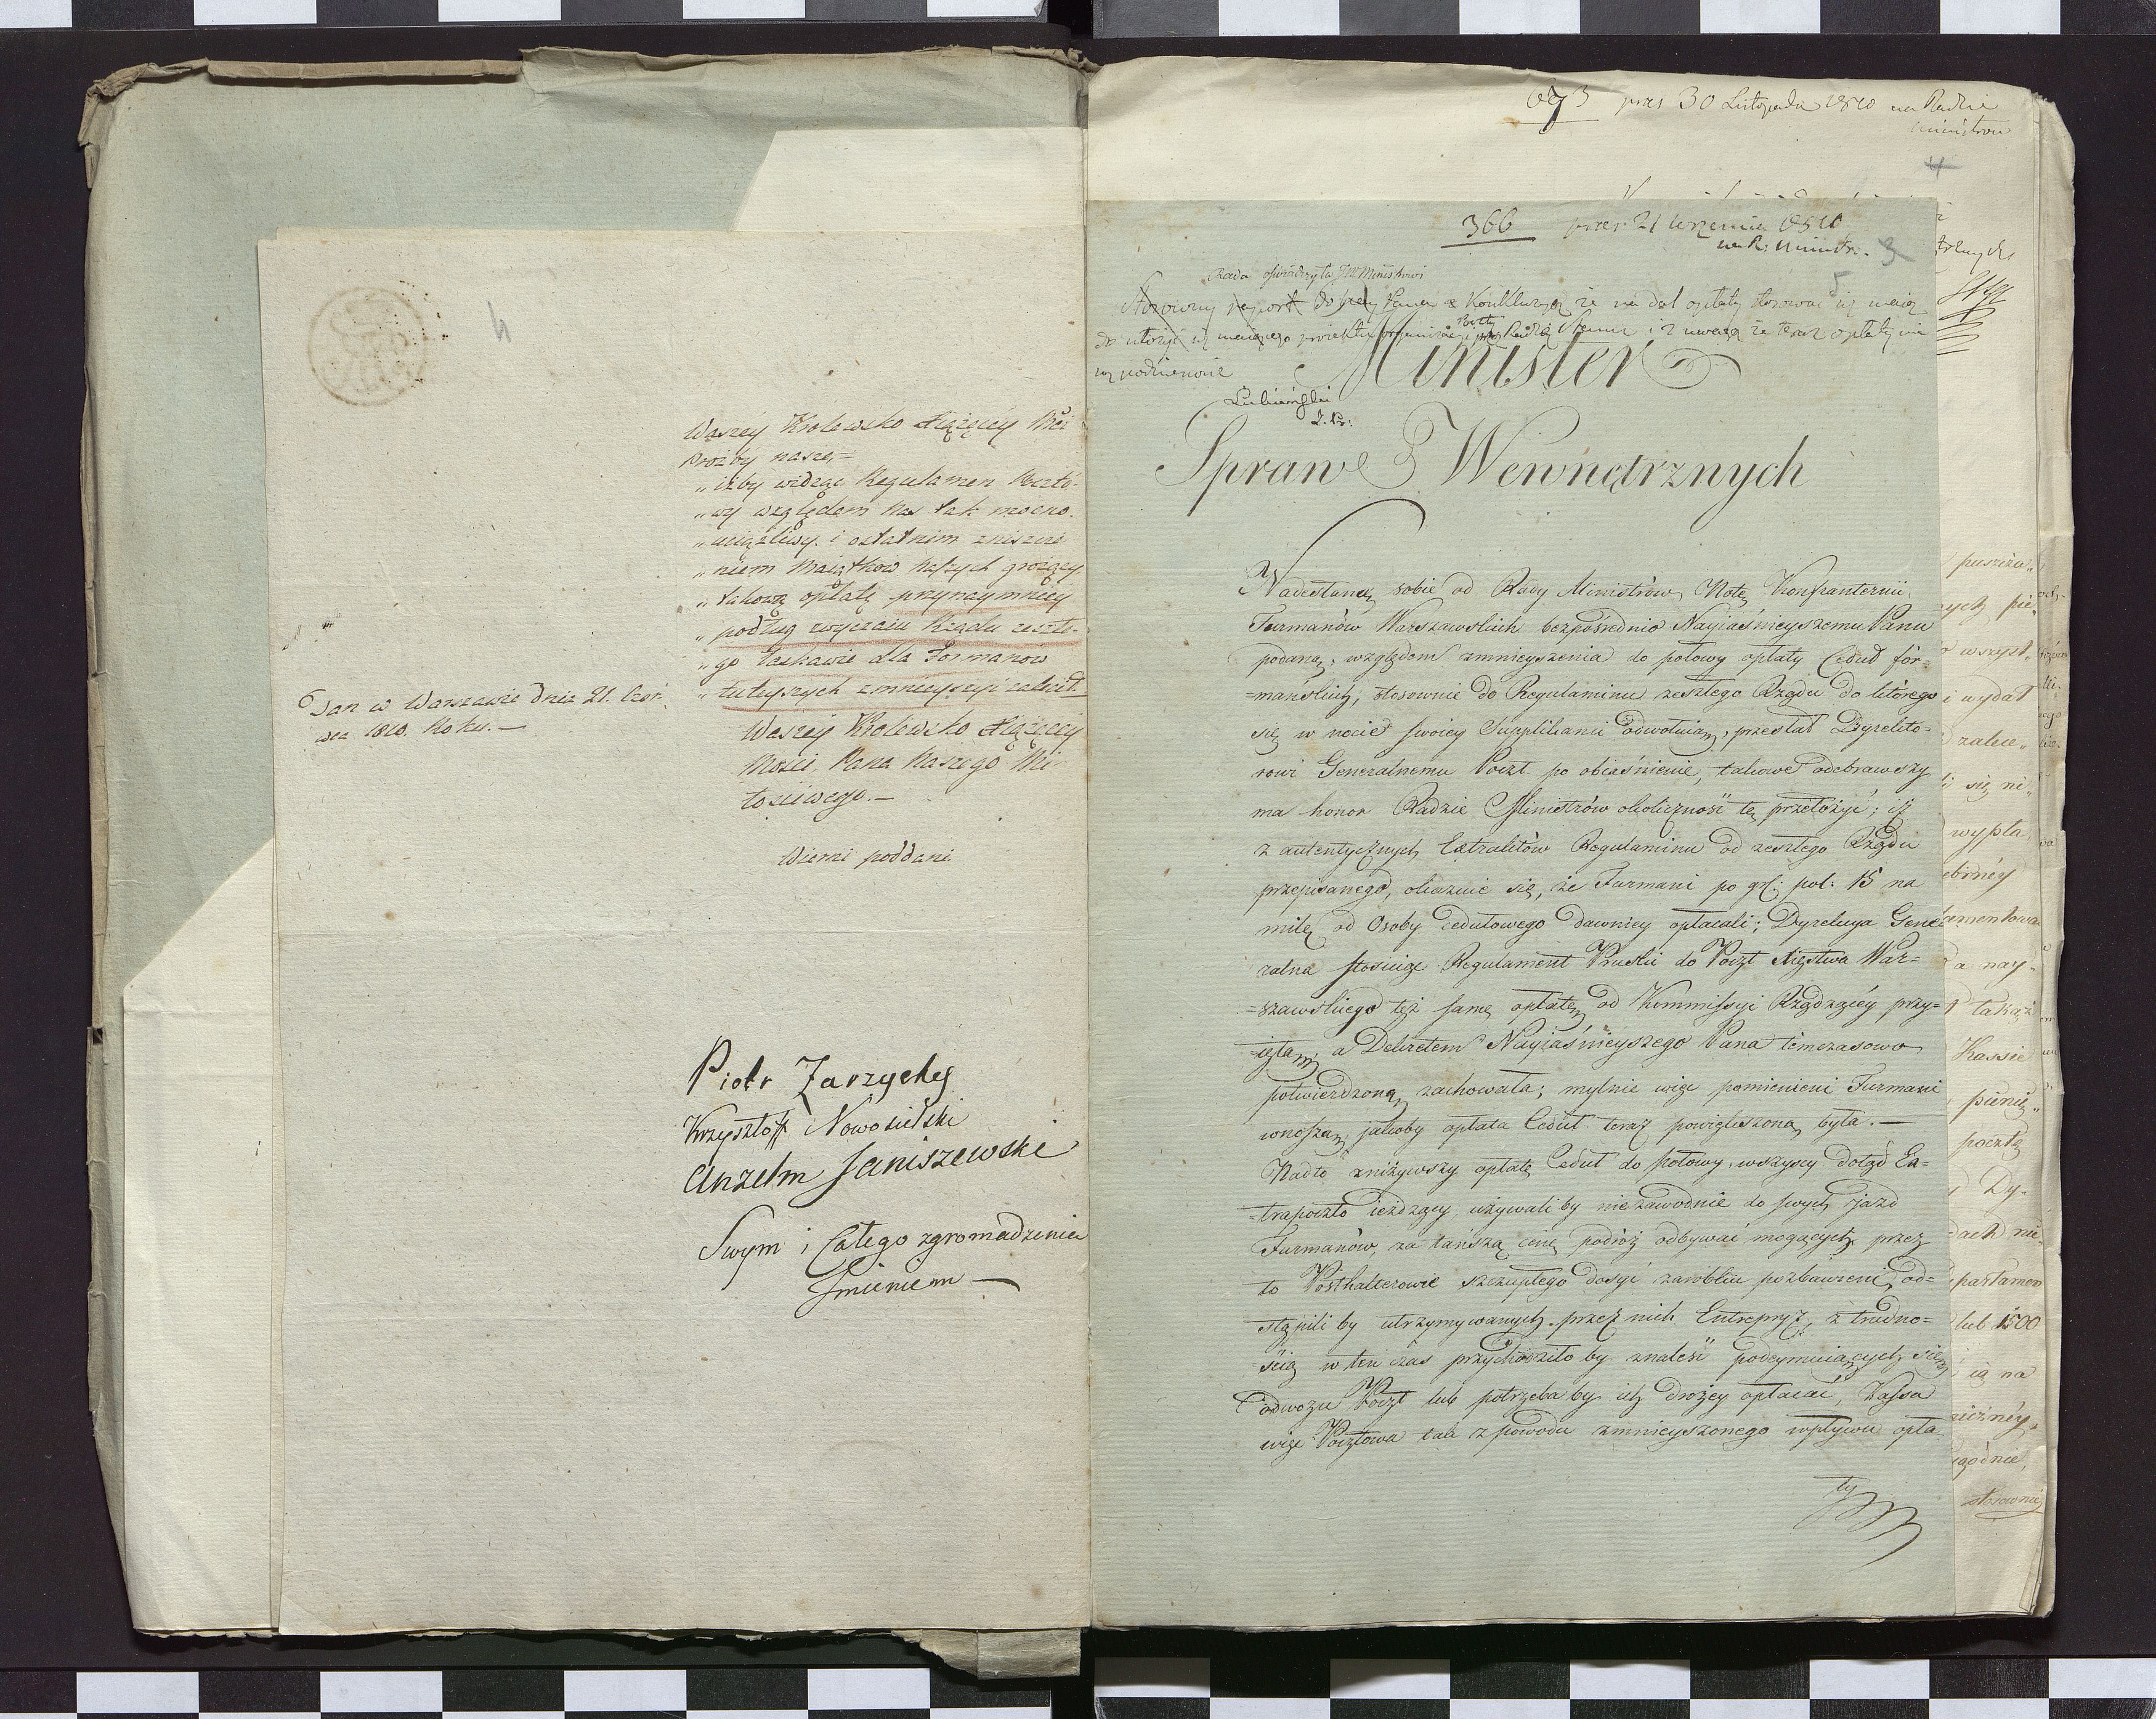 4
Waszey Krolewsko Xiążęcey Mci
Prożby nasze,=
„iżby widząc Regulamen Poczto-
„wy względem Nas tak mocno
„uciążliwy i ostatnim zniszcze
„niem Maiątkow Naszych grożący
„takową opłatę przynaymniey
„podług zwyczaiu Rządu zeszłe-
„go łaskawie dla Formanow
„tutuyszych zmnieyszyć zalecił.
Dan w Warszawie dnia 21. Czer-
wca 1810. Roku.—
Waszey Krolewsko Xiążęcey
Mości, Pana Naszego Mi-
łościwego.—
Wierni poddani
Piotr Zarzycky
Krzysztoff Nowosielski
Anzelm Janiszewski
Swym i Całego zgromadzenia
Jmieniem —
673 pres 30 Listopada 1810 na Radzie
Ministrow
4
366 pres: 21 Wrzesnia 1810
na R: Ministr. 3
5
Rada oświadczyła JW Ministrowi
że na dal opłaty stosować się maią
do ułożyć się maiącego proiektu i z uwagą że teraz opłaty nie
są podniesione
Lubieński
Minister
Spraw Wewnętrznych
Nadesłaną sobie od Rady Ministrów Notę Konfranternii
Furmanów Warszawskich bezpośrednio Nayiaśnieyszemu Panu
podaną, względem zmnieyszenia do połowy opłaty Ceduł för-
=mańskich, stosownie do Regulaminu zeszłego Rządu do którego
się w nocie swoiey Supplikanci odwołuią, przesłał Dyrekto-
rowi Generalnemu Poczt po obiaśnienie, takowe odebrawszy
ma honor Radzie Ministrów okoliczność tę przełożyć; iż
z autentycznych Extraktów Regulaminu od zeszłego Rządu
przepisanego, okazuie się, że Furmani po gr: pol: 15 na
milę od Osoby cedułowego dawniey opłacali; Dyrekcya Gene-
ralna stosuiąc Regulament Pruski do Poczt Xięstwa War=
=szawskiego też samę opłatę od Kommissyi Rządzącey przy=
=iętą, a Dekretem Nayiaśnieyszego Pana tymczasowo
potwierdzoną, zachowała; mylnie więc pomienieni Furmani
wnoszą, jakoby opłata Ceduł teraz powiększoną była.—
Nadto zniżywszy opłatę Ceduł do połowy, wszyscy dotąd Ex=
=trapocztą ieżdżący używaliby niezawodnie do swych jazd
Furmanów, za tańszą cenę podróż odbywać mogących, przez
to Posthalterowie szczupłego dosyć zarobku pozbawieni, od=
stąpiliby utrzymywanych przez nich Entrepryz, z trudno=
=ścią w ten czas przychodziłoby znaleść podeymuiących się
odwozu Poczt lub potrzebaby ich drożey opłacać, Kassa
więc Pocztowa tak z powodu zmnieyszonego wpływu opła
ty